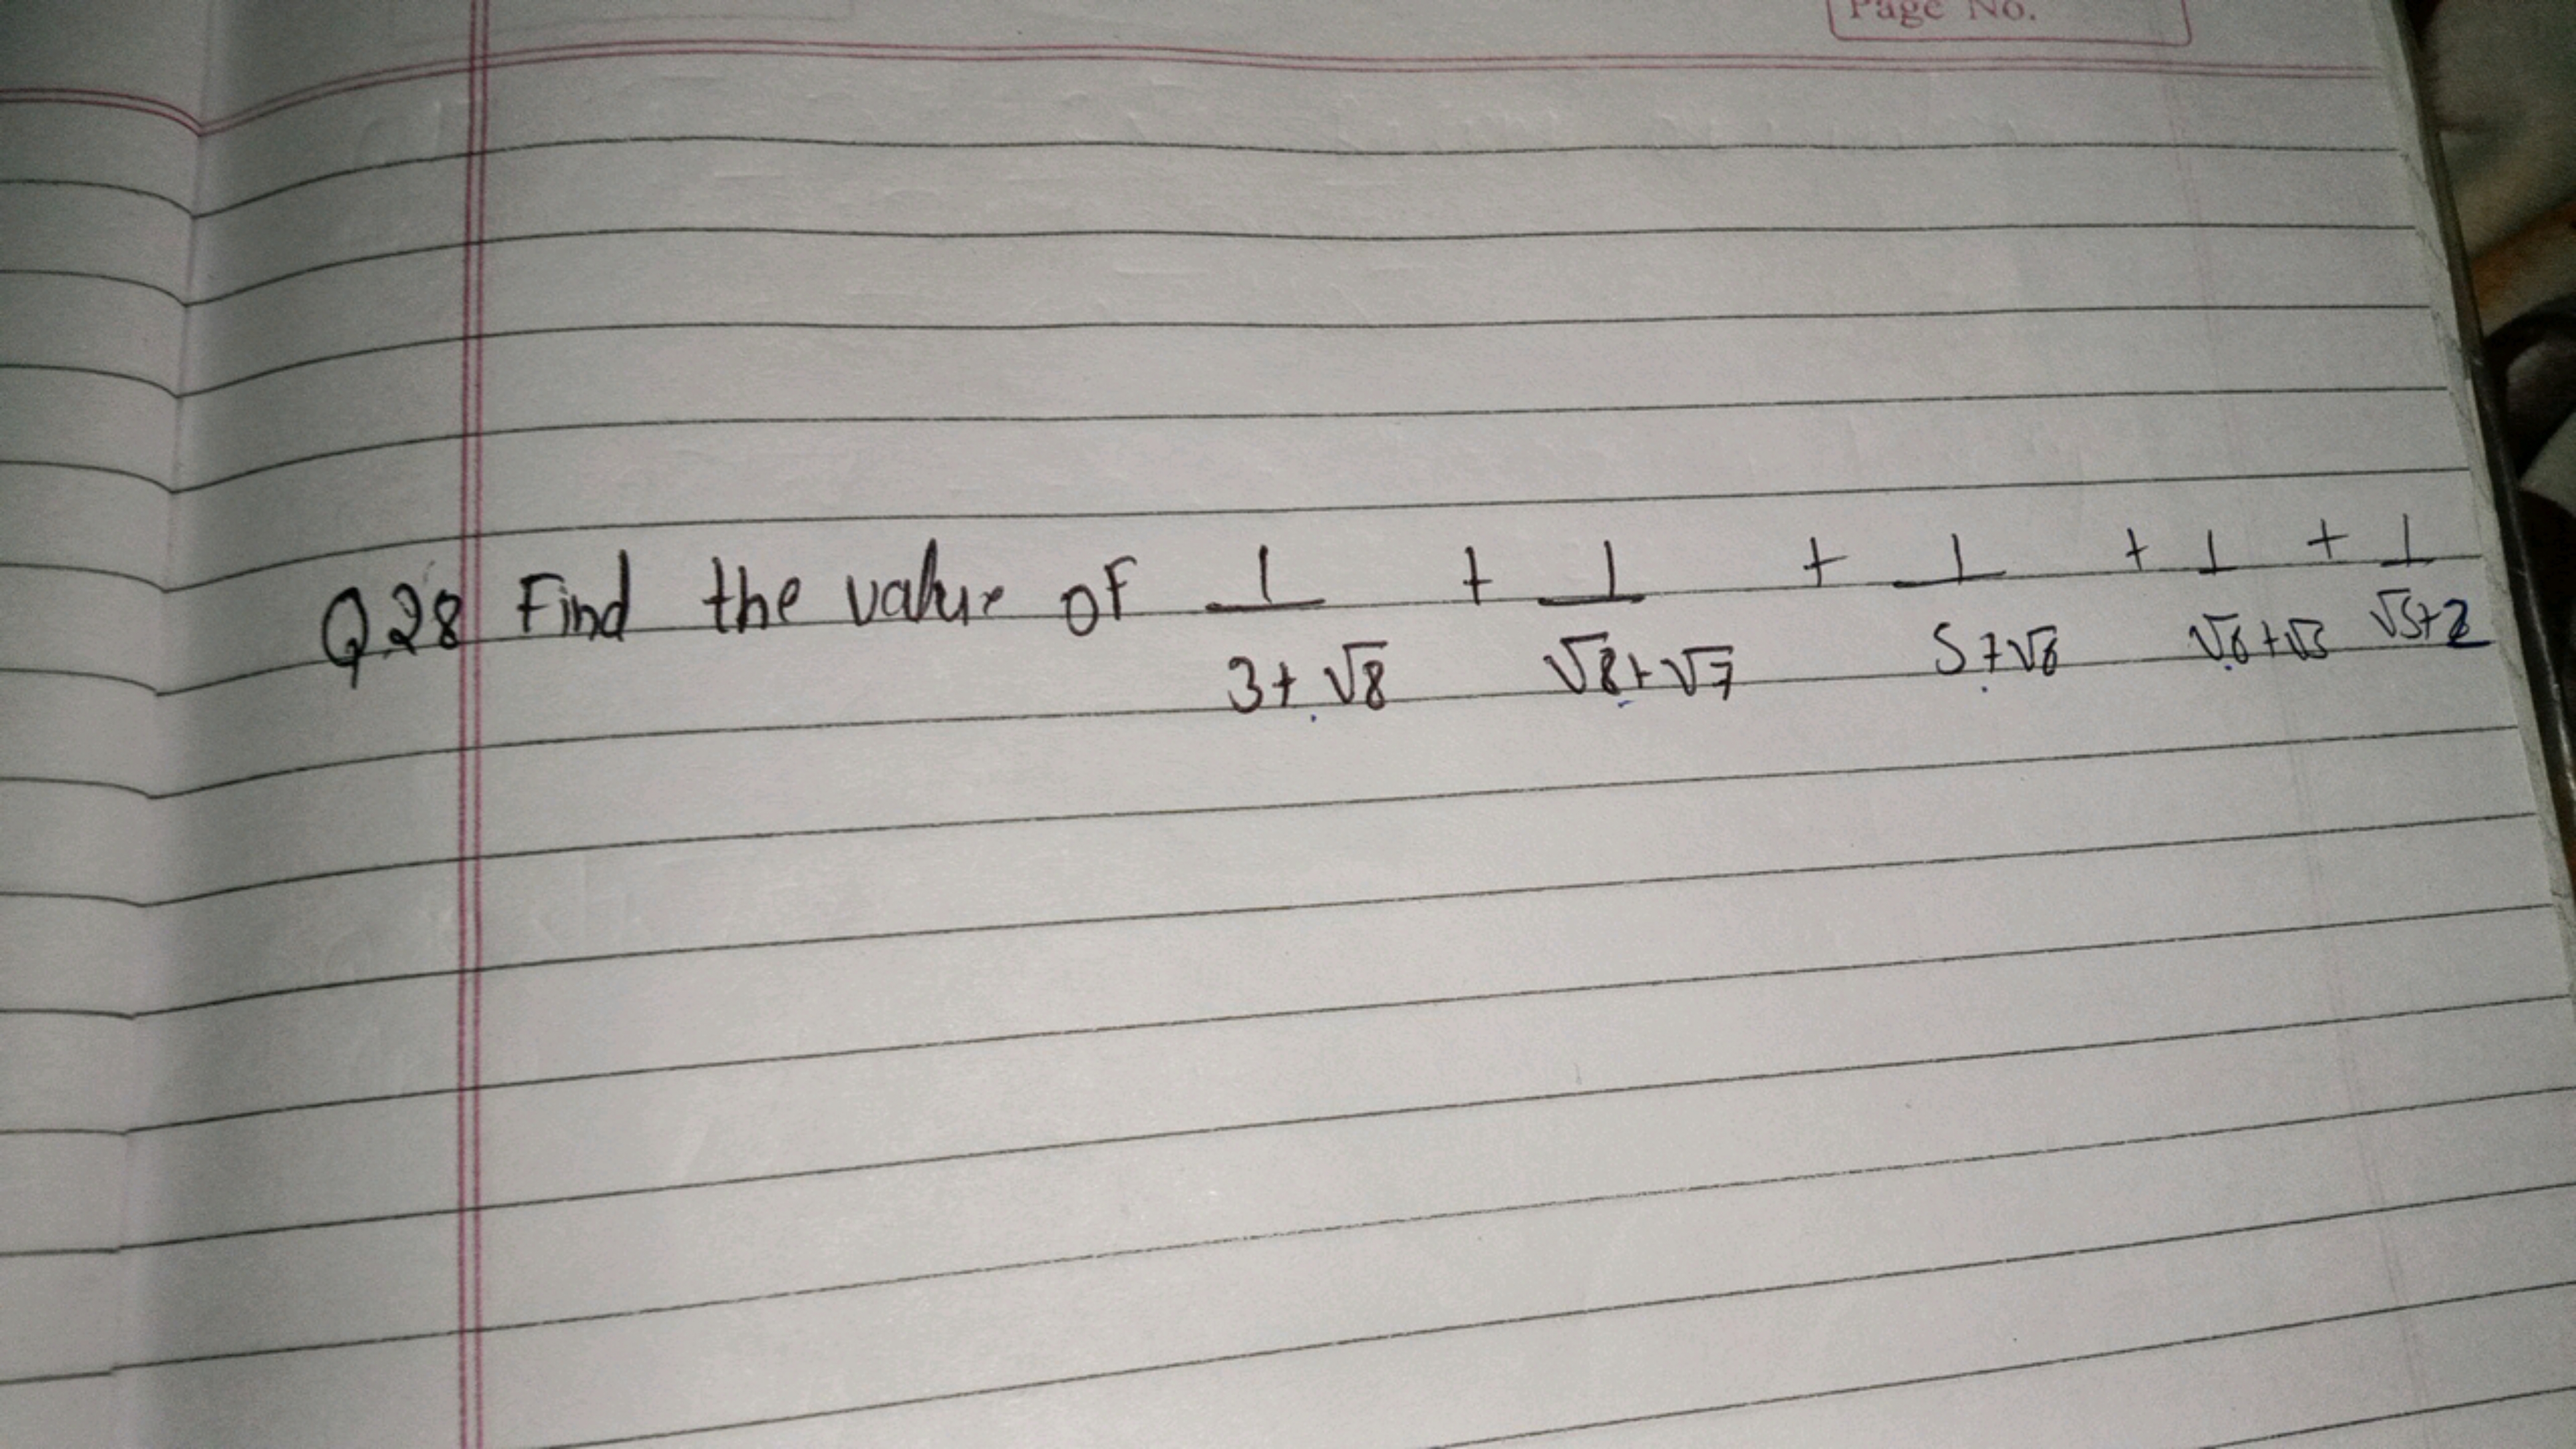 Page No.
Q.28 Find the value of 1/(3+√8) + 1/(√8+√7) + 1/(5+√6) + 1/(√6+√5) + 1/(√5+2)